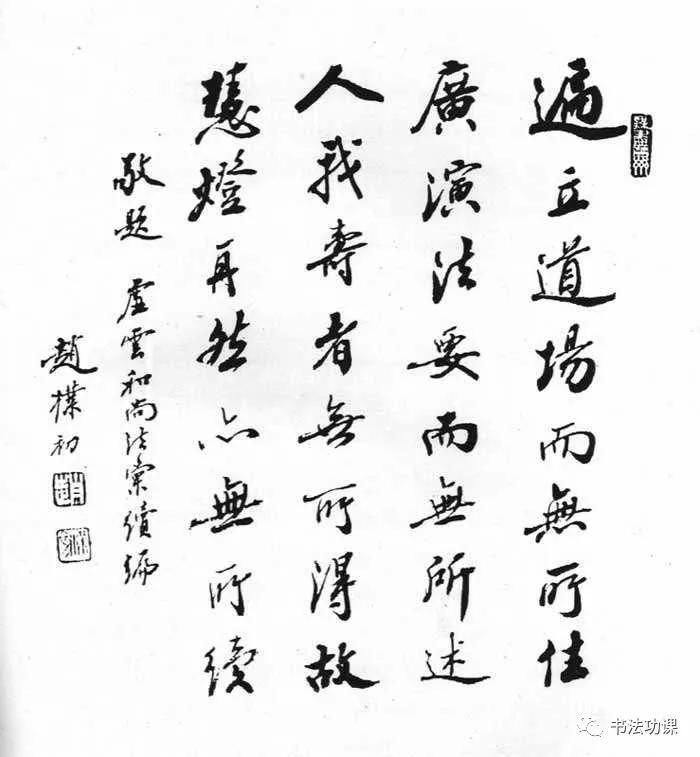 遍立道場而無所住
廣演法要而無所述
人我壽者無所得故
慧燈再然亦無所續
敬题 虛雲和尚法彙續編
趙樸初
书法功课